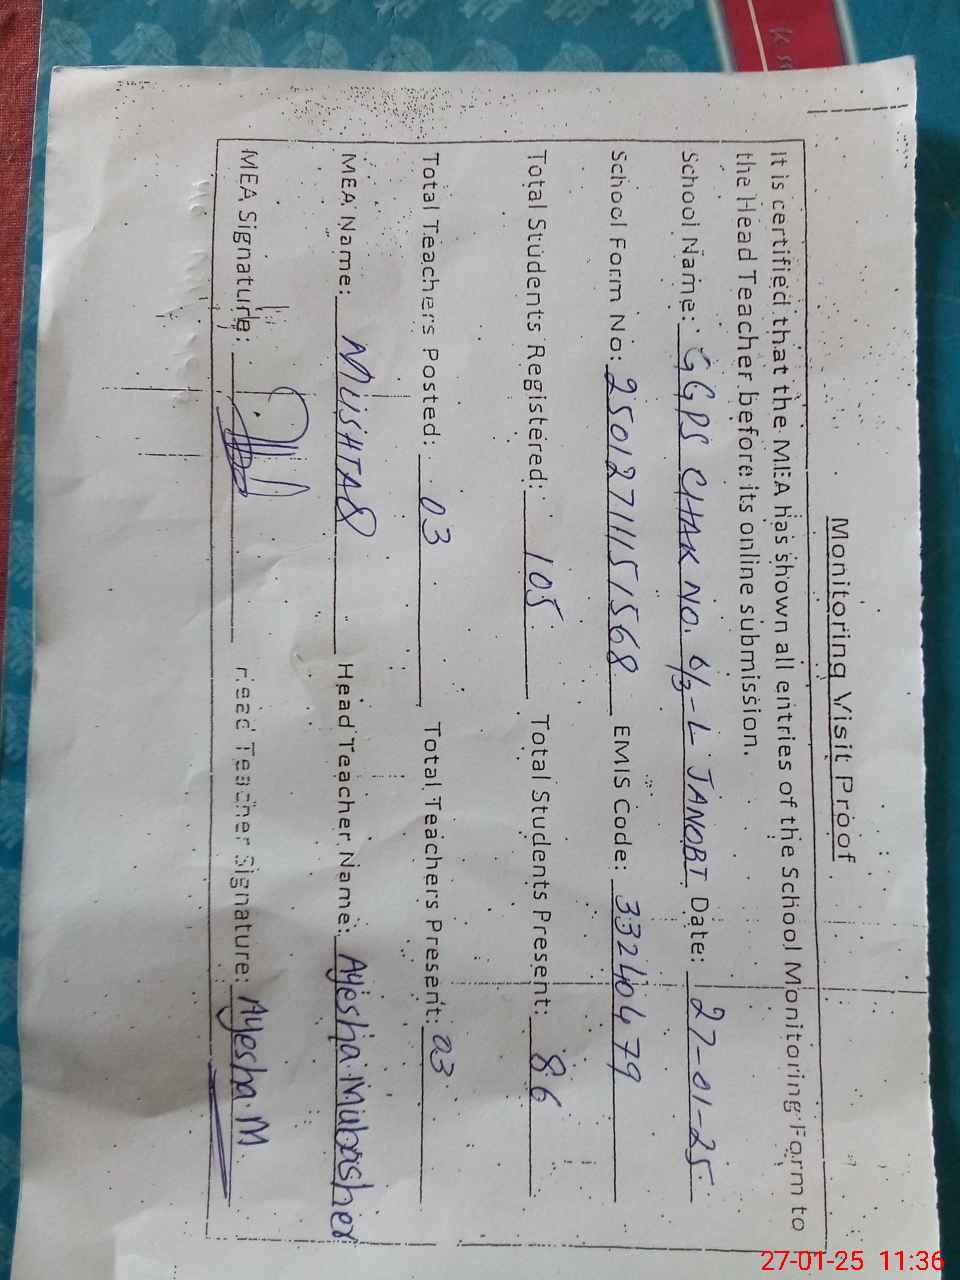 Monitoring Visit Proof
It is certified that the MEA has shown all entries of the School Monitoring Form to
the Head Teacher before its online submission.
School Name: GGPS CHAK NO. 6/3-L JANOBI Date: 27-01-25
School Form No: 25012711151568 EMIS Code: 33240479
Total Students Registered: 105 Total Students Present: 86
Total Teachers Posted: 03 Total Teachers Present: 03
MEA Name: MUSHTAQ Head Teacher Name: Ayesha Mubasher
MEA Signature: Head Teacher Signature: Ayesha M
27-01-25 11:36